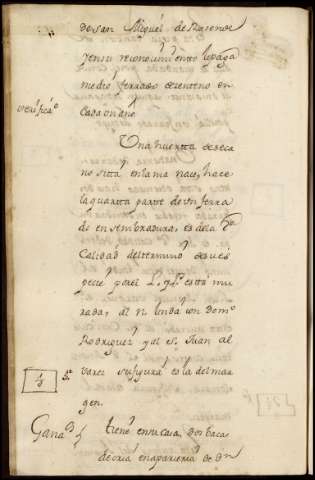 de san Miguel de Rosende
y en su reconocimiento le paga
medio ferrado de zenteno en
verificaᵒ
Cada un año
Una huertta de seca
no sitta en la ma
hace
la quartta partte de un ferra
do en sembradura, es de la
Calidad del termino de su es
pecie por el L. y P. estta mu
rada, al N. linda con Domᵒ
Rodriguez y al S. Juan Al
varez su figura es la del mar
gen.
1/2 5ª
Ganadᵒ tiene en su casa, dos bacas
de cria en aparzeria de Dⁿ